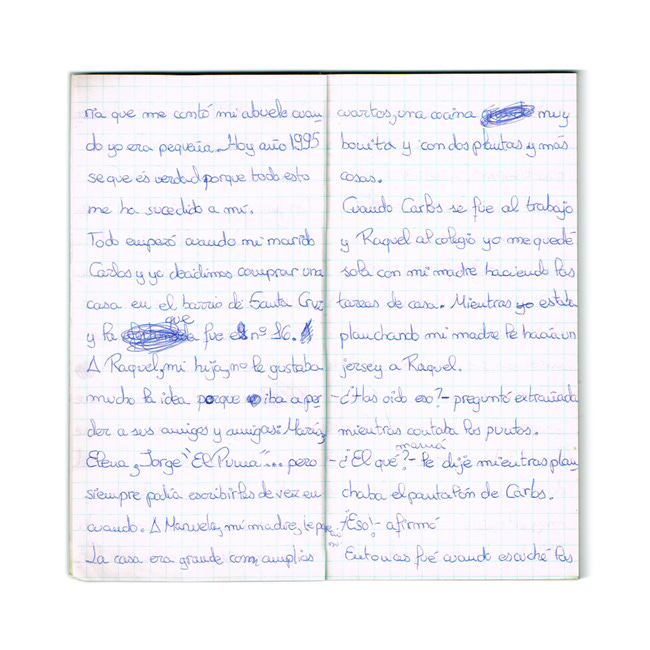 ria que me contó mi abuele cuan
do yo era pequeña. Hoy año 1995
se que és verdad porque todo esto
me ha sucedido a mí.
Todo empezó cuando mi marido
Carlos y yo decidimos comprar una
casa en el barrio de Santa Cruz
que
y la fue el nº 16.
A Raquel, mi hija, no le gustaba
mucho la idea porque iba a per
der a sus amigos y amigas: María,
Elena, Jorge "El Puma"... pero
siempre podía escribirles de vez en
cuando. A Manuela, mi madre, le
La casa era grande con amplios
cuartos, una cocina muy
bonita y con dos plantas y más
cosas.
Cuando Carlos se fue al trabajo
y Raquel al colegio yo me quedé
sola con mi madre haciendo las
tareas de casa. Mientras yo estaba
planchando mi madre le hacía un
jersey a Raquel.
-¿Has oido eso?- preguntó extrañada
mientras contaba los puntos.
mamá
-¿El qué?- le dije mientras plan
chaba el pantalón de Carlos.
-¡Eso!- afirmó
Entonces fué cuando escuché los